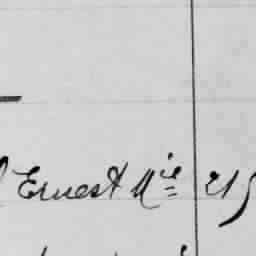 Ernest Mie 21